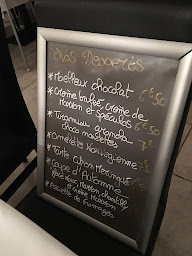 Nos Desserts
* Moelleux chocolat 6€50
* Crème brulée, crème de
marron et spéculos 6€50
* Tiramisu granola
choco noisettes 7€
* Omelette Norvégienne
* Tarte Citron Meringuée
* Coupe d'Automne
marron
* Assiette de fromages